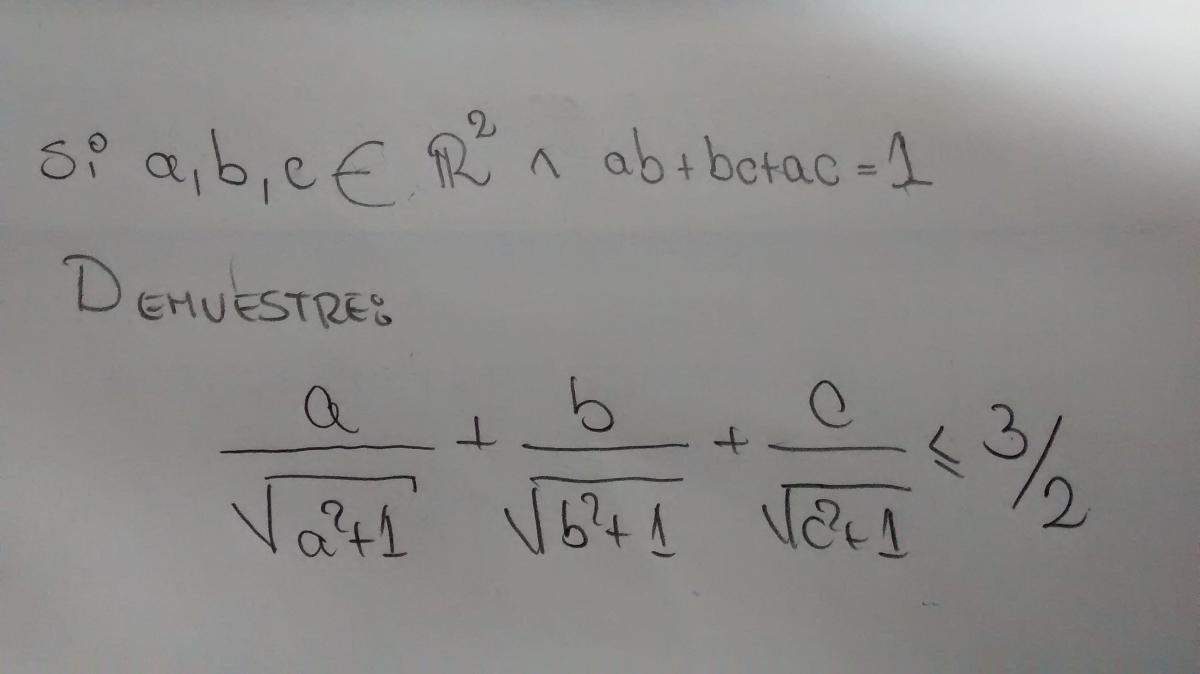 Si a, b, c ∈ ℝ² ∧ ab+bc+ac=1
DEMUESTRE:
a/√(a²+1) + b/√(b²+1) + c/√(c²+1) ≤ 3/2